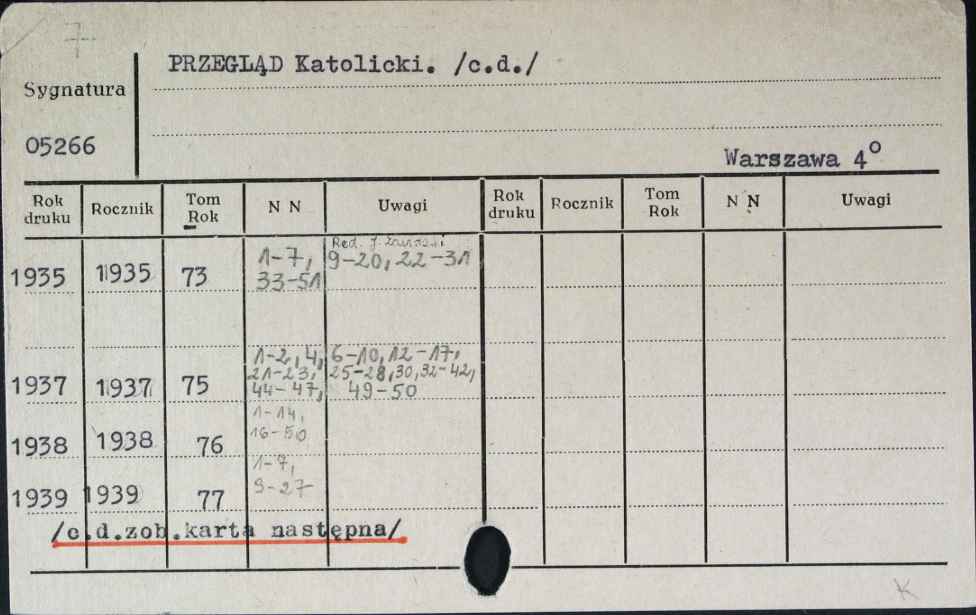 7
PRZEGLĄD Katolicki. /c.d./
Sygnatura
05266
Warszawa 4°
Rok druku Rocznik Tom Rok N N Uwagi Rok druku Rocznik Tom Rok N N Uwagi
Red. J.
1935 1935 73 1-7, 9-20, 22-31
33-51
1-2, 4, 6-10, 12-17,
21-23, 25-28, 30, 32-42,
1937 1937 75 44-47, 49-50
1-14,
1938 1938 76 16-50
1-7,
1939 1939 77 9-27
/c.d.zob.karta następna/
K